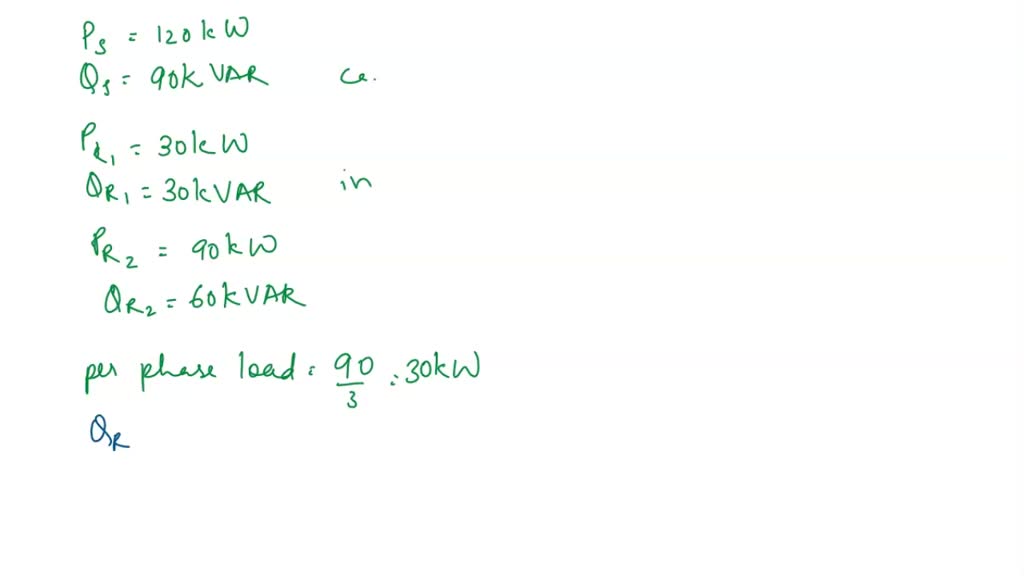 Ps = 120kW
Qs = 90kVAR ca.
PR1 = 30kW
QR1 = 30kVAR in
PR2 = 90kW
QR2 = 60kVAR
per phase load = 90/3 = 30kW
QR